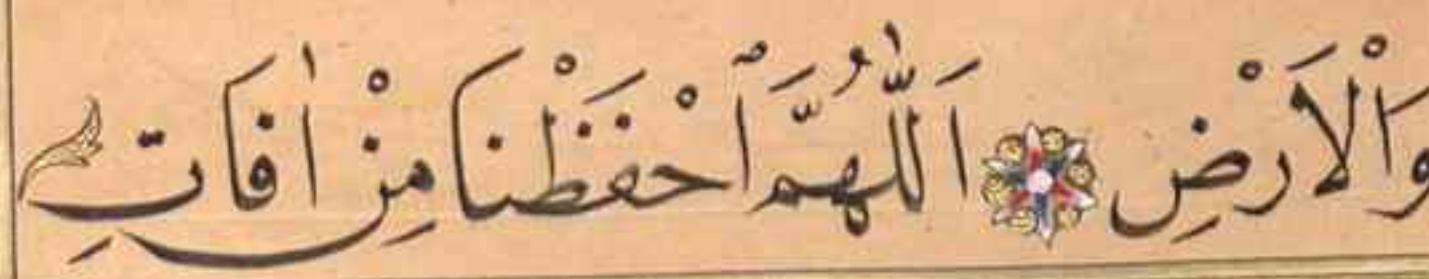 وَالْاَرْضِ اَللّٰهُمَّ احْفَظْنَا مِنْ اٰفَاتِ